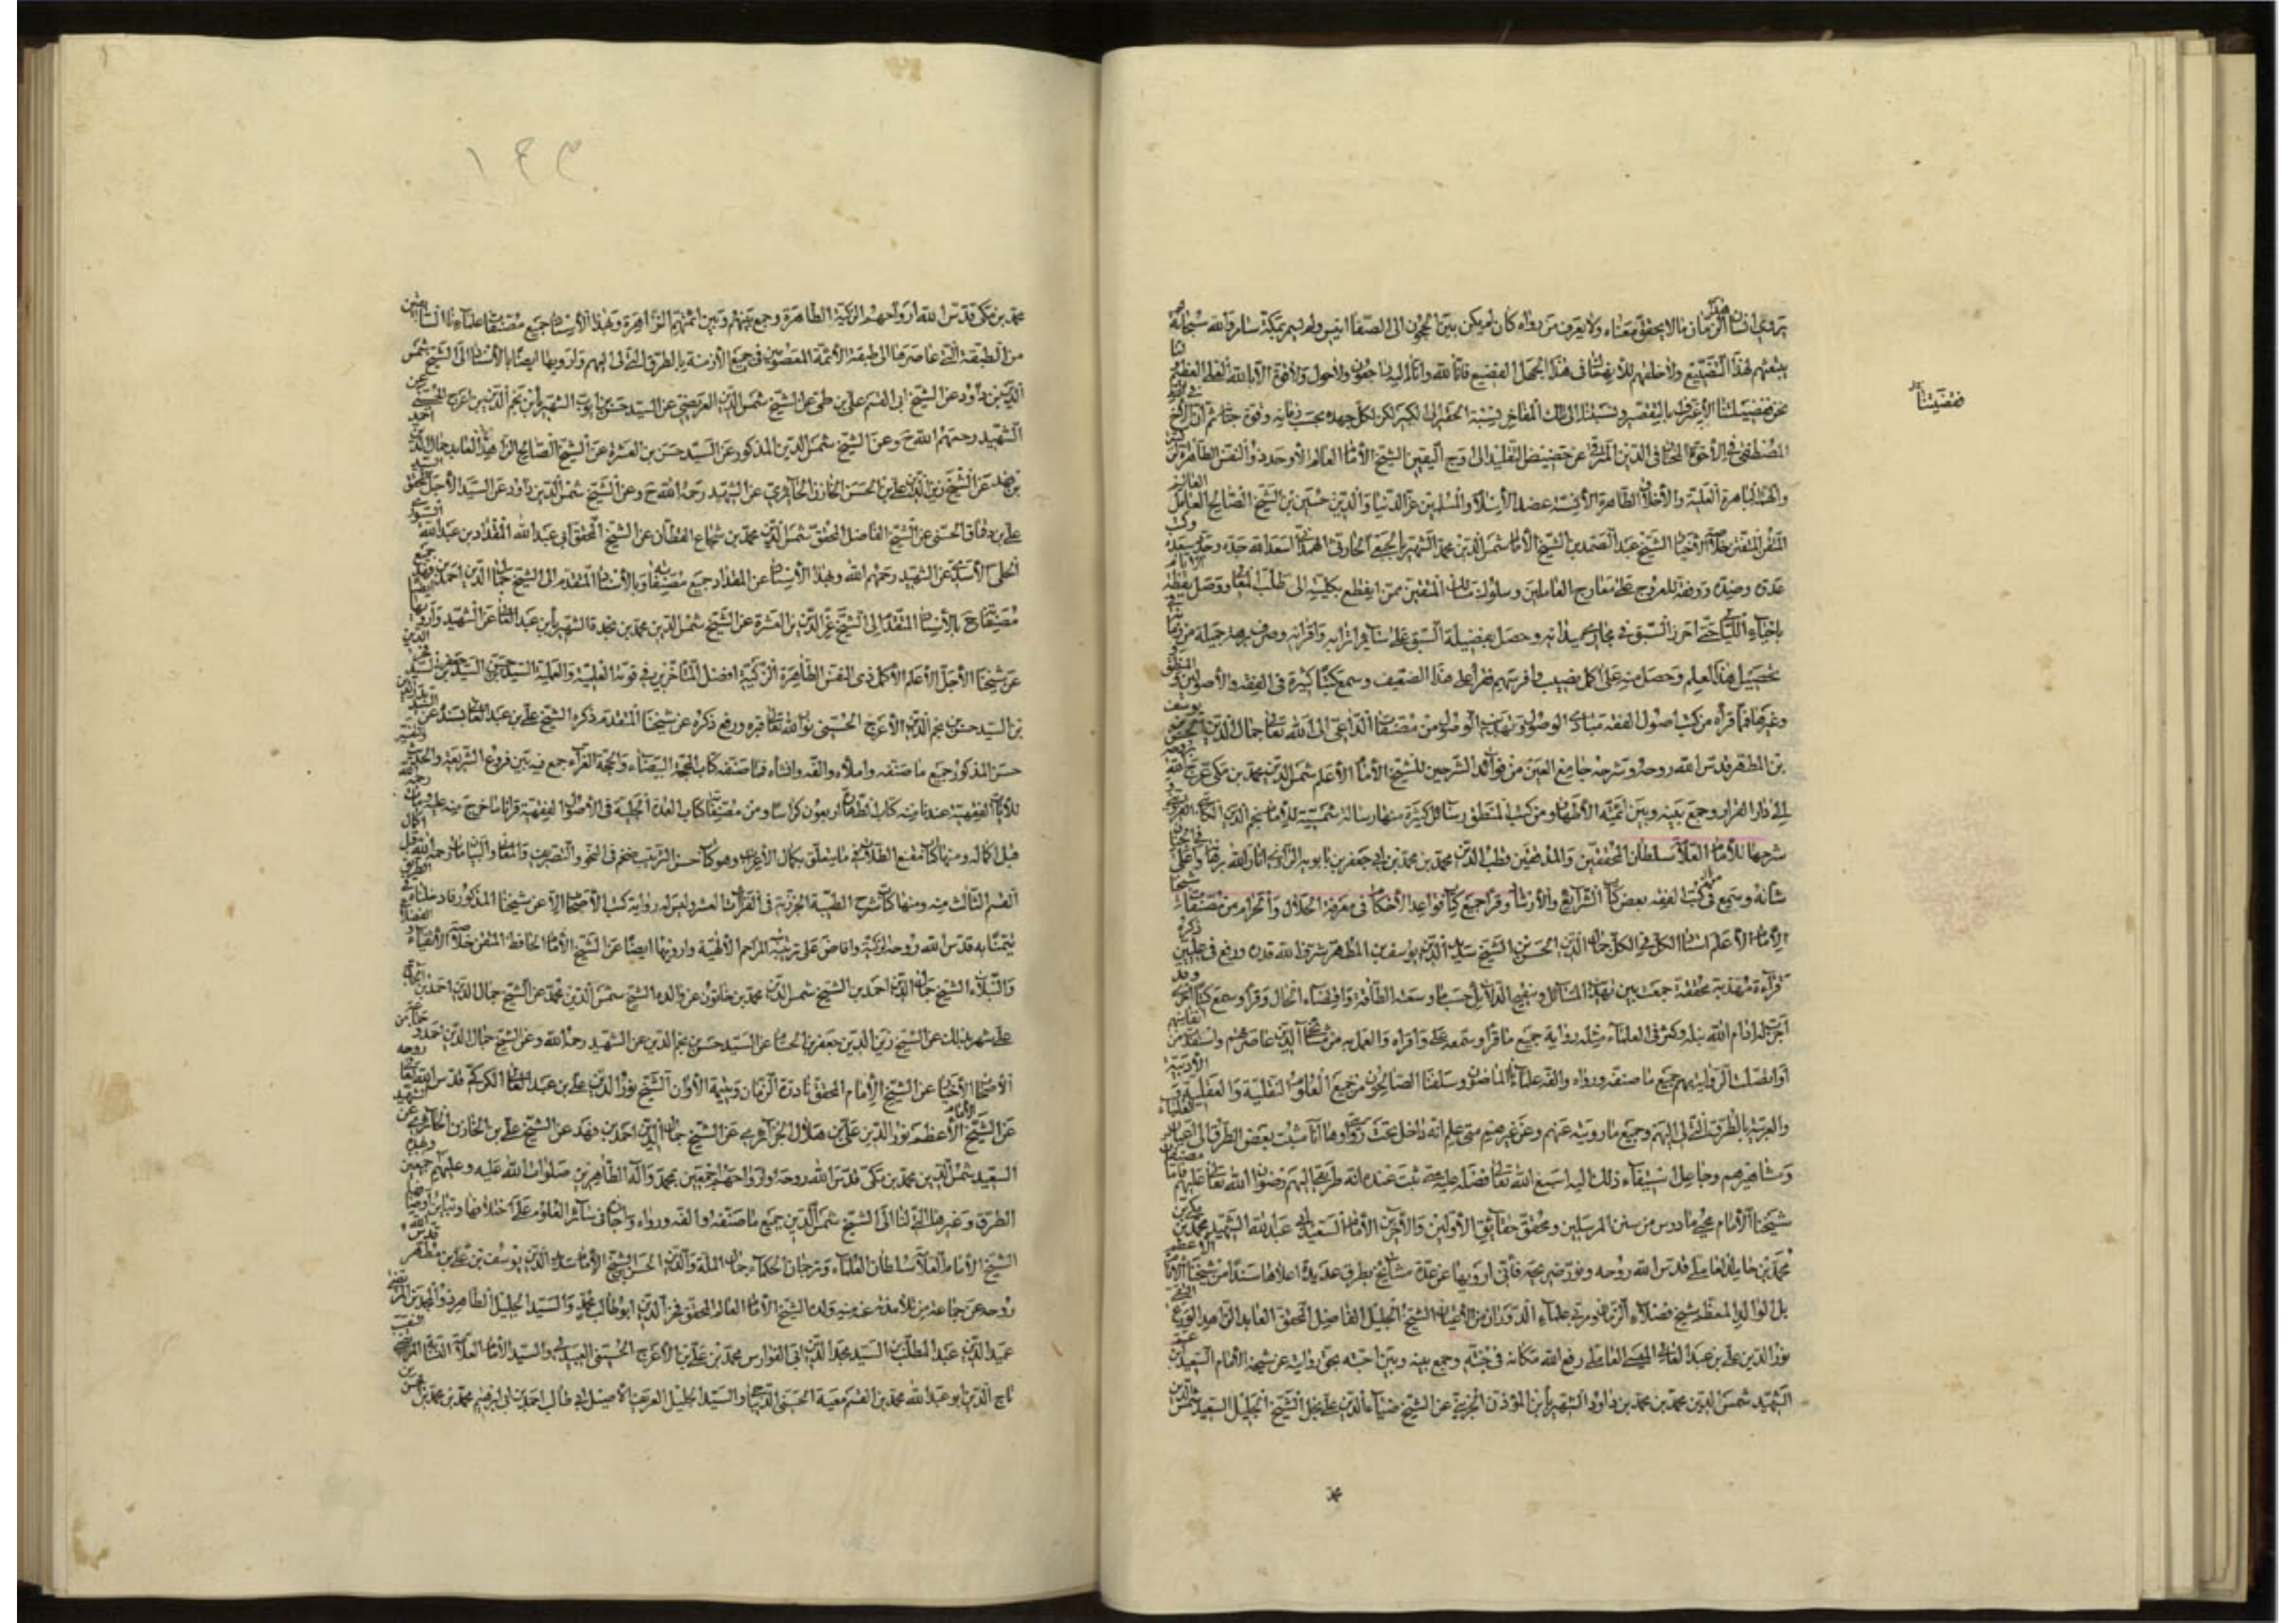 يروي انسان هذا الزمان ما لا يحقق معناه ولا يعرف من رواه كان لم يكن بين الحجون الى الصفا انيس ولم يسمر بمكة سامر فالله سبحانه
هذا التضييع ولا خلفهم في هذا الجهل الفضيع فانا لله وانا اليه راجعون ولا حول ولا قوة الا بالله العلي العظيم
ثم ان الاخ
المصطفى في الاخوة المختار في الدين المترقي عن حضيض التقليد الى اوج اليقين الشيخ الامام العالم الاوحد ذو النفس الطاهرة الزكية
والهمة الباهرة العلية والاخلاق الطاهرة الانسية عضد الاسلام والمسلمين عز الدنيا والدين حسين بن الشيخ الصالح العالم العامل
المتقن المتفنن خلاصة الاخيار الشيخ عبد الصمد بن الشيخ الامام شمس الدين محمد الشهير بالجبعي الحارثي الهمداني اسعد الله جده وجدد سعده وكبت
عدوه وضده ووفقه للعروج على معارج العاملين وسلوك مسالك المتقين ممن انقطع بكليته الى طلب المعالي ووصل يقظة الايام
باحياء الليالي حتى احرز السبق في مجاري ميدانه وحصل بفضيلة السبق على سائر اترابه واقرانه وصرف برهة جميلة من زمانه في
تحصيل هذا العلم وحصل منه على اكمل نصيب واوفر سهم فقرأ على هذا الضعيف وسمع كتبا كثيرة في الفقه والاصولين والمنطق
وغيرها فمما قرأه من كتب اصول الفقه مبادي الوصول وتهذيب الوصول من مصنفات الداعي الى الله تعالى جمال الدين الحسن بن يوسف
بن المطهر قدس الله روحه وشرحه جامع البين من فوائد الشرحين للشيخ الامام الاعلم شمس الدين محمد بن مكي عرج الله بروحه
الى دار القرار وجمع بينه وبين ائمته الاطهار ومن كتب المنطق رسائل كثيرة منها رسالة شمسية للامام نجم الدين الكاتبي القزويني و
شرحها للامام العلامة سلطان المحققين والمدققين قطب الدين محمد بن محمد بن ابي جعفر بن بابويه الرازي انار الله برهانه واعلى في الجنان
شانه وسمع من كتب الفقه بعض كتاب الشرايع والارشاد وقرأ جميع كتاب قواعد الاحكام في معرفة الحلال والحرام من مصنفات شيخنا
الامام الاعلم استاد الكل في الكل جمال الدين الحسن بن الشيخ سديد الدين يوسف بن المطهر شرف الله قدره ورفع في عليين ذكره
قرآءة مهذبة محققة جمعت بين تهذيب المسائل وتنقيح الدلائل حسب ما وسعته الطاقة واقتضاه الحال وقرأ وسمع كتبا اخرى وقد
اجزت له ادام الله نبله وكثر في العلماء مثله رواية جميع ما قرأ وسمعه علي وقراه والعمل به من مشايخنا الذين عاصرتهم واستفدت من انفاسهم
او اتصلت الرواية بهم جميع ما صنفه ورواه والفه علماؤنا الماضون وسلفنا الصالحون من جميع العلوم النقلية والعقلية والادبية
والعربية بالطرق التي لي اليهم وجميع ما رويته عنهم وعن غيرهم متى علم انه داخل تحت روايتي وها انا مثبت بعض الطرق الى اعيان العلماء
ومشاهيرهم وجاعل استيفاء ذلك اليه اسبغ الله تعالى فضله عليه متى ثبت عنده انه طريق اليهم رضوان الله تعالى عليهم فاما مصنفات
شيخنا الامام محيي ما درس من سنن المرسلين ومحقق حقايق الاولين والآخرين الامام السعيد ابي عبد الله الشهيد محمد بن مكي بن
محمد بن حامد العاملي قدس الله روحه ونور ضريحه فاني ارويها عن عدة مشايخ بطرق عديدة اعلاها سندا من شيخنا الامام الاعظم
بل الوالد المعظم شيخ فضلاء الزمان ومربي علماء الدوران من الاعيان الشيخ الجليل الفاضل المحقق العابد الزاهد الورع التقي
نور الدين علي بن عبد العالي الميسي العاملي رفع الله مكانه في جنته وجمع بينه وبين احبته بحق روايته عن شيخه الامام السعيد ابن عم
الشهيد شمس الدين محمد بن محمد بن داود الشهير بابن المؤذن الجزيني عن الشيخ ضياء الدين علي نجل الشيخ الجليل السعيد شمس الدين
فضيتنا
١٤٣
محمد بن مكي قدس الله ارواحهم الزكية الطاهرة وجمع بينهم وبين ائمتهم الزاهرة وبهذا الاسناد جميع مصنفات علمائنا السابقين
من الطبقة التي عاصرها الى طبقة الأئمة المعصومين في جميع الازمنة بالطرق التي له اليهم وارويها ايضا بالاسناد الى الشيخ شمس
الدين بن داود عن الشيخ ابي القسم علي بن طي عن الشيخ شمس الدين العريضي عن السيد حسن بن ايوب الشهير بابن نجم الدين بن اعرج الحسيني عن
الشهيد رحمهم الله ح وعن الشيخ شمس الدين المذكور عن السيد حسن بن العشرة عن الشيخ الصالح الزاهد العابد جمال الدين احمد
بن فهد عن الشيخ زين الدين علي بن الحسن الخازن الحائري عن الشهيد رحمه الله ح وعن الشيخ شمس الدين بن داود عن السيد الاجل المحقق السيد
علي بن دقماق الحسني عن الشيخ الفاضل المحقق شمس الدين محمد بن شجاع القطان عن الشيخ المحقق ابي عبد الله المقداد بن عبد الله السيوري
الحلي الاسدي عن الشهيد رحمهم الله وبهذا الاسناد عن المقداد جميع مصنفاته وبالاسناد المتقدم الى الشيخ جمال الدين احمد بن فهد جميع
مصنفاته ح بالاسناد المتقدم الى الشيخ عز الدين بن العشرة عن الشيخ شمس الدين محمد بن نجدة الشهير بابن عبد العالي عن الشهيد وارويها ايضا
عن شيخنا الاجل الاعلم الاكمل ذي النفس الطاهرة الزكية افضل المتأخرين في قوتيه العلمية والعملية السيد حسن بن السيد جعفر
بن السيد حسن بن نجم الدين الاعرج الحسيني نور الله تعالى قبره ورفع ذكره عن شيخنا المتقدم ذكره الشيخ علي بن عبد العالي بسنده عن
حسن المذكور جميع ما صنفه واملاه والفه وانشاه فمما صنفه كتاب المحجة البيضاء والحجة الغراء جمع فيه بين فروع الشريعة والحديث والتفسير
للآيات الفقهية عندنا منه كتاب الطهارة اربعون كراسا ومن مصنفاته كتاب العمدة الجلية في الاصول الفقهية قرأنا ما خرج منه عليه ومات رحمه الله
قبل اكماله ومنها كتاب مقنع الطلاب فيما يتعلق بكلام الاعراب وهو كتاب حسن الترتيب ضخم في النحو والتصريف والمعاني والبيان مات رحمه الله قبل اكمال
القسم الثالث منه ومنها كتاب شرح الطيبة الجزرية في القراآت العشر وليس له رواية كتب الاصحاب الا عن شيخنا المذكور فادخلناه في الطريق
تيمنا به قدس الله روحه الزكية وافاض على تربته المراحم الالهية وارويها ايضا عن الشيخ الامام الحافظ المتقن خلاصة الاتقياء والفضلاء
والنبلاء الشيخ جمال الدين احمد بن الشيخ شمس الدين محمد بن خاتون عن والده الشيخ شمس الدين محمد عن الشيخ جمال الدين احمد بن الحاج
علي شهر بذلك عن الشيخ زين الدين جعفر بن الحسام عن السيد حسن بن نجم الدين عن الشهيد رحمه الله وعن الشيخ جمال الدين احمد و جماعة من
الاصحاب الاخيار عن الشيخ الامام المحقق نادرة الزمان ويتيمة الاوان الشيخ نور الدين علي بن عبد العالي الكركي قدس الله تعالى روحه
عن الشيخ الامام الاعظم نور الدين علي بن هلال الجزائري عن الشيخ جمال الدين احمد بن فهد عن الشيخ علي بن الخازن الحائري عن الشهيد
السعيد شمس الدين محمد بن مكي قدس الله روحه وارواحهم اجمعين بمحمد وآله الطاهرين صلوات الله عليه وعليهم اجمعين وبهذه
الطرق وغيرها التي لنا الى الشيخ شمس الدين جميع ما صنفه والفه ورواه واجازه في سائر العلوم على اختلافها وتباين اوصافها
الشيخ الامام العلامة سلطان العلماء وترجمان الحكماء جمال الملة والدين الحسن بن الشيخ الامام سديد الدين يوسف بن علي بن مطهر قدس الله
روحه عن جماعة من تلامذته عنه منهم ولده الشيخ الامام العالم المحقق فخر الدين ابو طالب محمد والسيد الجليل الطاهر ذو المجدين المرتضى
عميد الدين عبد المطلب بن السيد مجد الدين ابي الفوارس محمد بن علي بن الاعرج الحسيني العبيدلي والسيد الامام العلامة النسابة المرتضى النقيب
تاج الدين ابو عبد الله محمد بن القسم بن معية الحسني الديباجي والسيد الجليل العريق الاصيل ابي طالب احمد بن ابي ابراهيم محمد بن محمد بن الحسن بن